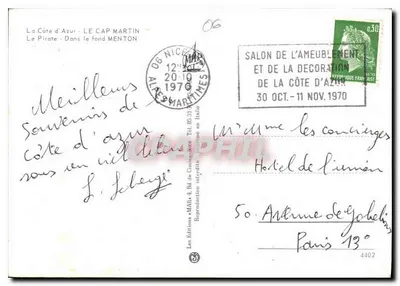 La Côte d'Azur - LE CAP MARTIN
Le Pirate - Dans le fond MENTON
06
06 NICE
12H
20·10
1970
ALPES MARITIMES
SALON DE L'AMEUBLEMENT
ET DE LA DECORATION
DE LA CÔTE D'AZUR
30 OCT.-11 NOV. 1970
0,30
REPUBLIQUE FRANÇAISE
Meilleurs
Souvenirs de la
Côte d'azur
sous un ciel bleu
Les Editions «MAR»
Reproduction interdite
M. Mme les concierges
Hotel de l'union
50. Avenue des Gobelins
Paris 13°
4402